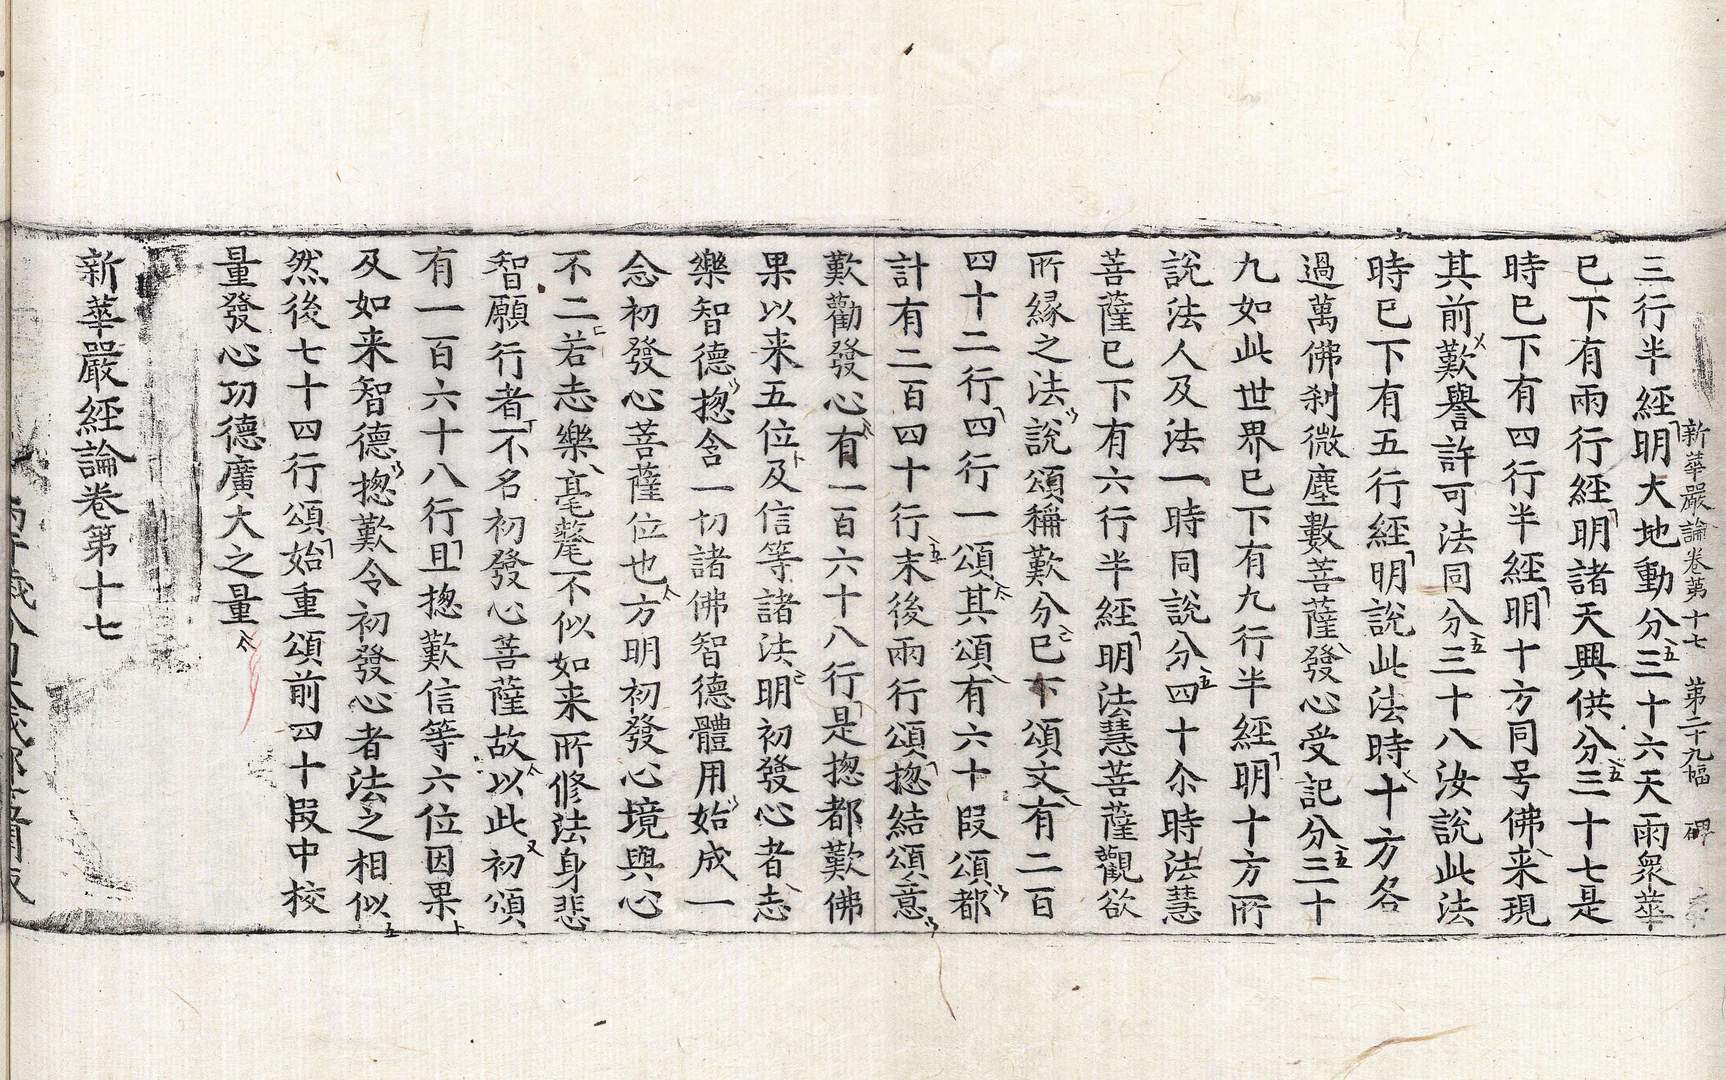 新華嚴論卷第十七 第二十九幅 碑
三行半經明大地動分三十六天雨衆華
已下有兩行經明諸天興供分三十七是
時已下有四行半經明十方同号佛来現
其前歎譽許可法同分三十八汝說此法
時已下有五行經明說此法時十方各
過萬佛刹微塵數菩薩發心受記分三十
九如此世界已下有九行半經明十方所
說法人及法一時同說分四十尒時法慧
菩薩已下有六行半經明法慧菩薩觀欲
所縁之法說頌稱歎分已下頌文有二百
四十二行四行一頌其頌有六十段頌都
計有二百四十行末後兩行頌揔結頌意
歎勸發心有一百六十八行是揔都歎佛
果以来五位及信等諸法明初發心者志
樂智德揔含一切諸佛智德體用始成一
念初發心菩薩位也方明初發心境與心
不二若志樂毫氂不似如来所修法身悲
智願行者不名初發心菩薩故以此初頌
有一百六十八行且揔歎信等六位因果
及如来智德揔歎令初發心者法之相似
然後七十四行頌始重頌前四十段中校
量發心功德廣大之量
新華嚴經論卷第十七